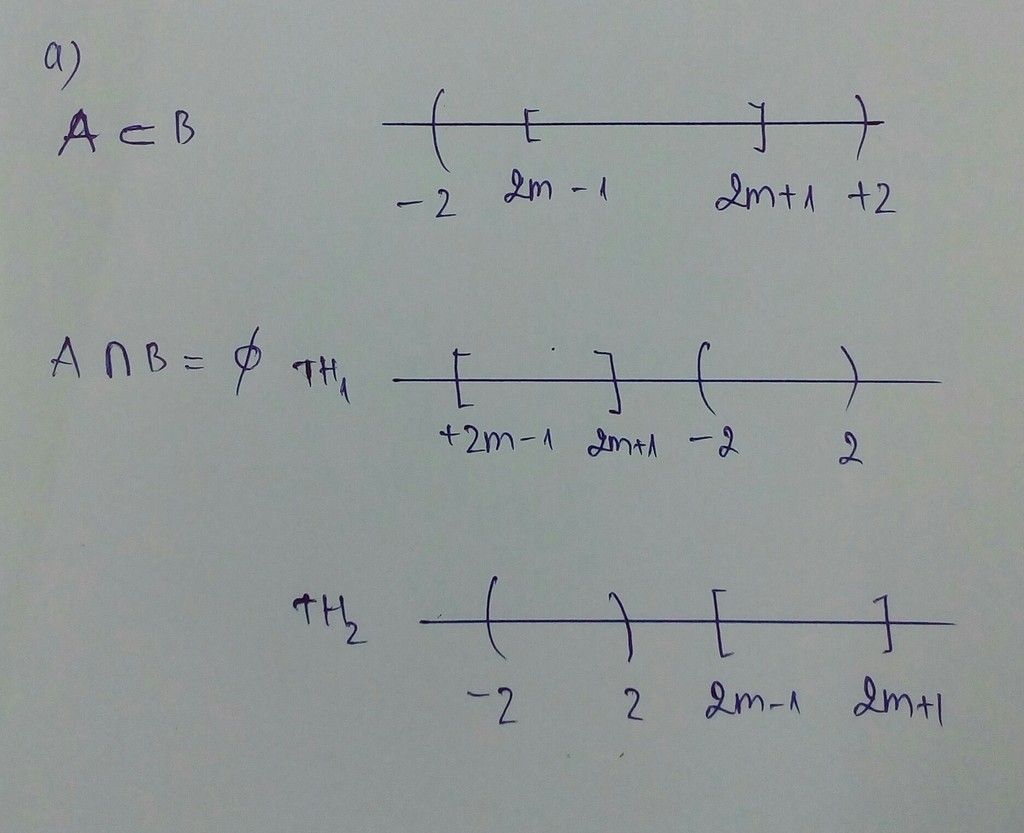 a)
A ⊂ B
-2 2m-1 2m+1 +2
A ∩ B = ϕ TH₁
+2m-1 2m+1 -2 2
TH₂
-2 2 2m-1 2m+1